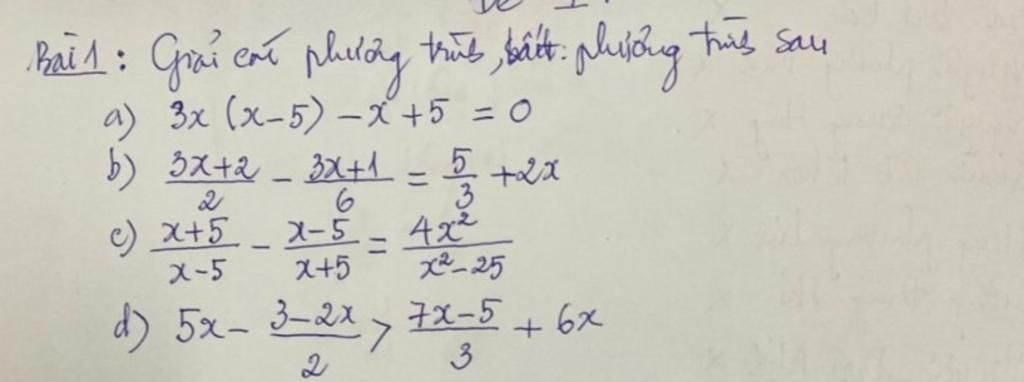 Bài 1: Giải các phương trình, bất phương trình sau
a) 3x (x-5) - x + 5 = 0
b) \frac{3x+2}{2} - \frac{3x+1}{6} = \frac{5}{3} + 2x
c) \frac{x+5}{x-5} - \frac{x-5}{x+5} = \frac{4x^2}{x^2-25}
d) 5x - \frac{3-2x}{2} > \frac{7x-5}{3} + 6x